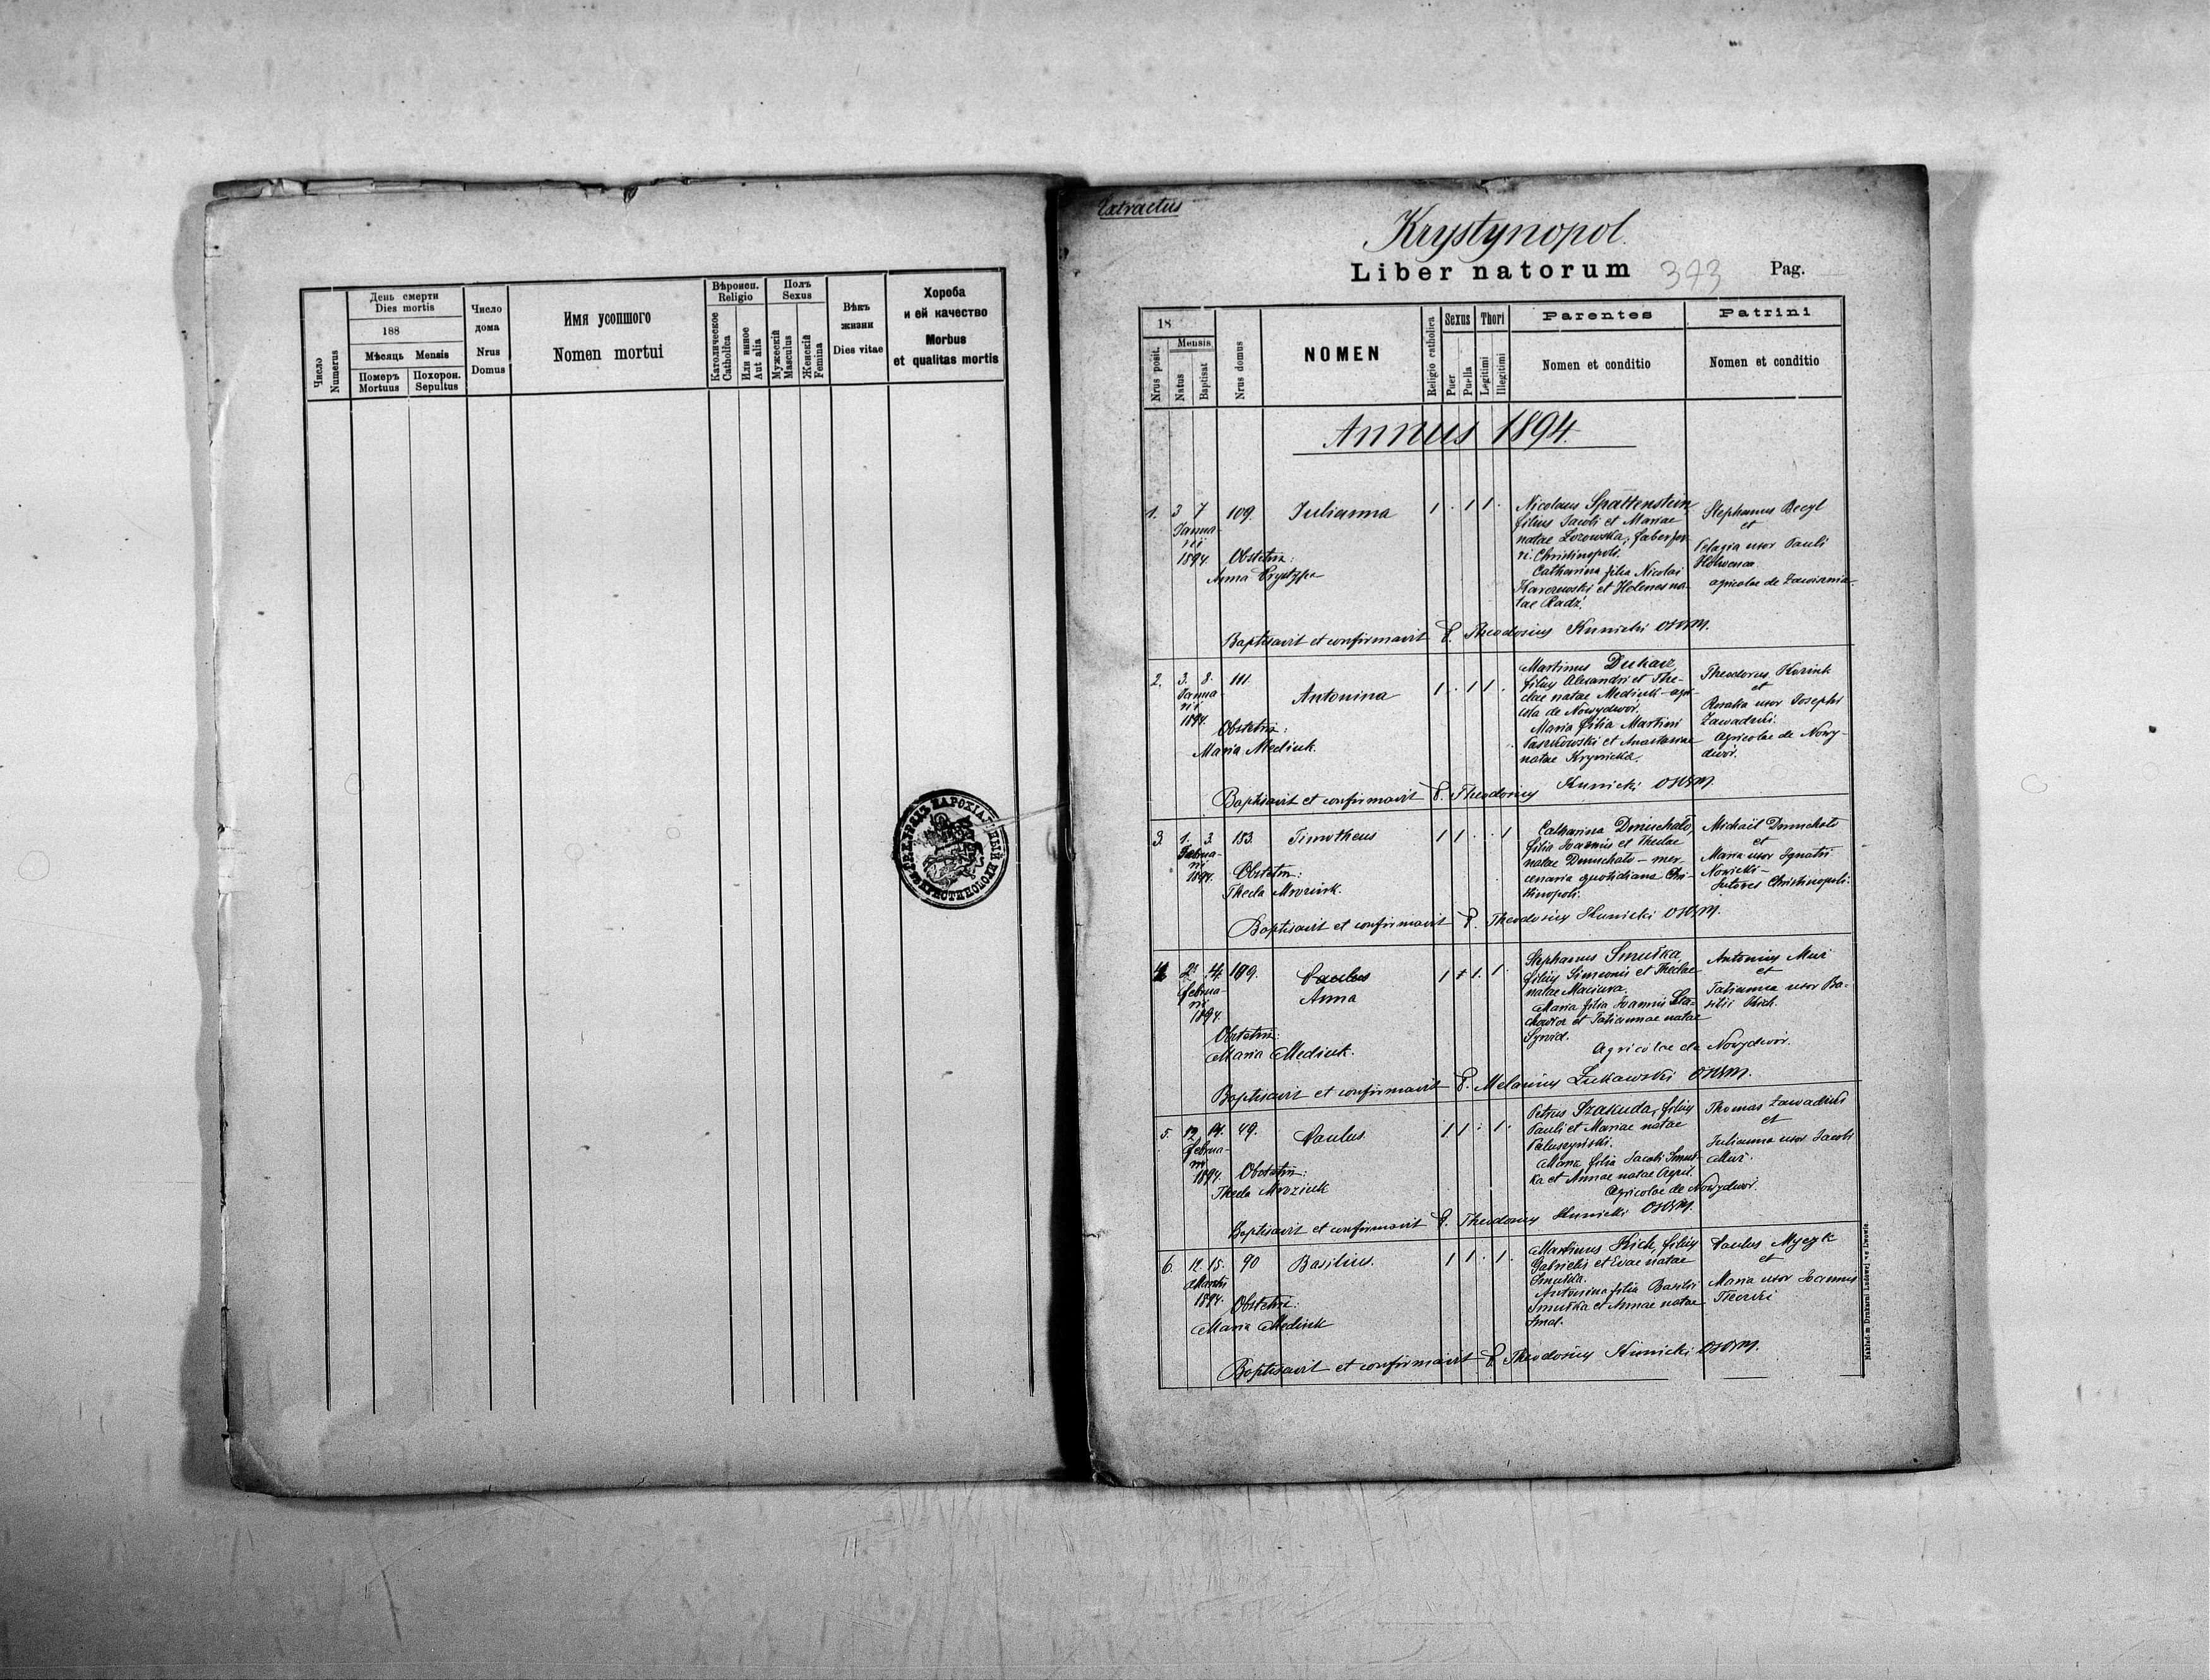 День смерти
Dies mortis
188
Мѣсяць Mensis
Померъ
Mortuus
Похорон.
Sepultus
Число
Numerus
Число
дома
Nrus
Domus
Имя усопшого
Nomen mortui
Вѣроисп.
Religio
Католическое
Catholica
Или иное
Aut alia
Полъ
Sexus
Мужескій
Masculus
Женскій
Femina
Вѣкъ
жизни
Dies vitae
Хороба
и ей качество
Morbus
et qualitas mortis
Extractus
Krystynopol.
Liber natorum 373 Pag.
18
Mensis
Nrus posit.
Natus
Baptisat
Nrus domus
NOMEN
Religio catholica
Sexus
Puer
Puella
Thori
Legitimi
Illegitimi
Parentes
Nomen et conditio
Patrini
Nomen et conditio
Annus 1894.
1. 3 7 109. Julianna 1 . 1 1 .
Janua-
rii
1894.
Obstetrix:
Anna
Nicolaus Spattenstein,
filius Jacobi et Mariae
natae Lozowska, faber fer-
ri Christinopoli.
Catharina filia Nicolai
Karczewski et Helenes na-
tae Radź.
Stephanus Becyl
et
Pelagia uxor Pauli
agricolae de Zawisznia.
Baptisavit et confirmavit P. Theodosius Kunicki OSBM.
2. 3. 8. 111. Antonina 1 . 1 1 .
Janua-
rii
1894.
Obstetrix:
Maria Mediuk.
Martinus Duhacz,
filius Alexandri et The-
clae natae Mediuk – agri-
cola de Nowydwór.
Maria filia Martini
Paszkowski et Anastasiae
natae Krynicka.
Theodorus Koziuk
et
Rosalia uxor Josephi
Zawadzki.
Agricolae de Nowy-
dwór.
Baptisavit et confirmavit P. Theodosius Kunicki OSBM.
3. 1. 3. 153. Timotheus 1 1 . . 1
Februa-
rii
1894.
Obstetrix:
Thecla Mroziuk.
Catharina Dmuchało,
filia Joannis et Theclae
natae Dmuchało – mer-
cenaria quotidiana Chri-
stinopoli.
Michaël Dmuchało
et
Maria uxor Ignatii
Nowicki –
sutores Christinopoli.
Baptisavit et confirmavit P. Theodosius Kunicki OSBM.
4. 2. 4. 109. Paulus 1 + 1. 1.
Anna
Februa-
rii
1894.
Obstetrix:
Maria Mediuk.
Stephanus Smutka,
filius Simeonis et Theclae
natae Maciura.
Maria filia Joannis
et Tatiannae natae
Antonius Muź
et
Tatianna uxor Ba-
silii Kich.
Agricolae de Nowydwór.
Baptisavit et confirmavit P. Melanius Łukawski OSBM.
5. 12. 14. 49. Paulus 1. 1 . 1.
Februa-
rii
1894.
Obstetrix:
Thecla Mroziuk
Petrus Szakuda, filius
Pauli et Mariae natae
Paluszyński.
Maria filia Jacobi Smut-
ka et Annae natae
Agricolae de Nowydwór.
Thomas Zawadzki
et
Julianna uxor Jacobi
Muź.
Baptisavit et confirmavit P. Theodosius Kunicki OSBM.
6. 12. 15. 90 Basilius. 1 1 . 1.
Martii
1894.
Obstetrix:
Maria Mediuk
Martinus Kich, filius
Gabrielis et Evae natae
Smutka.
Antonina filia Basilii
Smutka et Annae natae
Smal.
Paulus Myczk
et
Maria uxor Joannis
Baptisavit et confirmavit P. Theodosius Kunicki OSBM.
Nakładem Drukarni Ludowej we Lwowie.